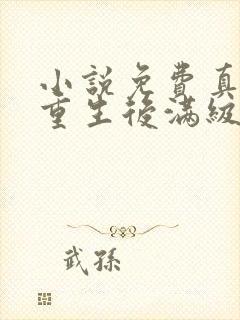 小說免費真
重生後滿級
武孫